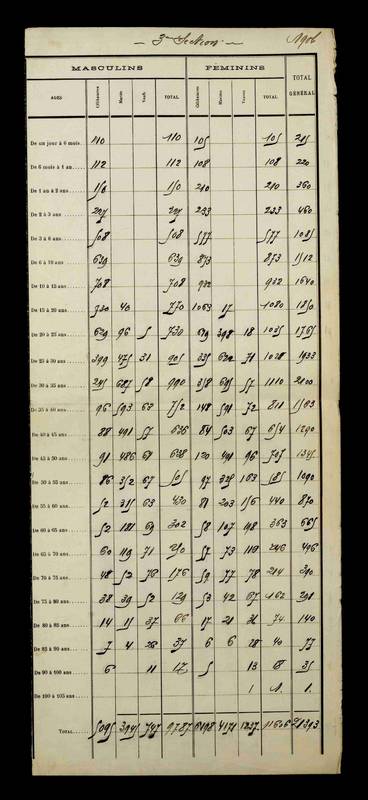 3me Section
1906
MASCULINS FÉMININS TOTAL GÉNÉRAL
AGES Célibataires Mariés Veufs TOTAL Célibataires Mariées Veuves TOTAL
De un jour à 6 mois 110 110 105 105 215
De 6 mois à 1 an 112 112 108 108 220
De 1 an à 2 ans 150 150 210 210 360
De 2 à 3 ans 227 227 233 233 460
De 3 à 6 ans 508 508 577 577 1085
De 6 à 10 ans 639 639 873 873 1512
De 10 à 15 ans 708 708 932 932 1640
De 15 à 20 ans 730 40 770 1063 17 1080 1850
De 20 à 25 ans 629 96 5 730 619 398 18 1035 1765
De 25 à 30 ans 399 475 31 905 335 622 71 1028 1933
De 30 à 35 ans 245 687 58 990 358 695 57 1110 2100
De 35 à 40 ans 96 593 63 752 148 591 72 811 1563
De 40 à 45 ans 88 491 57 636 84 503 67 654 1290
De 45 à 50 ans 91 486 61 638 120 491 96 707 1345
De 50 à 55 ans 86 352 67 505 97 325 163 585 1090
De 55 à 60 ans 52 315 63 430 81 203 156 440 870
De 60 à 65 ans 52 181 69 302 58 107 198 363 665
De 65 à 70 ans 60 119 71 250 57 73 116 246 496
De 70 à 75 ans 48 52 76 176 59 77 78 214 390
De 75 à 80 ans 38 39 52 129 53 42 67 162 291
De 80 à 85 ans 14 15 37 66 17 21 36 74 140
De 85 à 90 ans 7 4 26 37 6 6 28 40 77
De 90 à 100 ans 6 11 17 5 13 18 35
De 100 à 105 ans 1 1. 1.
TOTAL 5095 3945 747 9787 6198 4171 1237 11606 21393